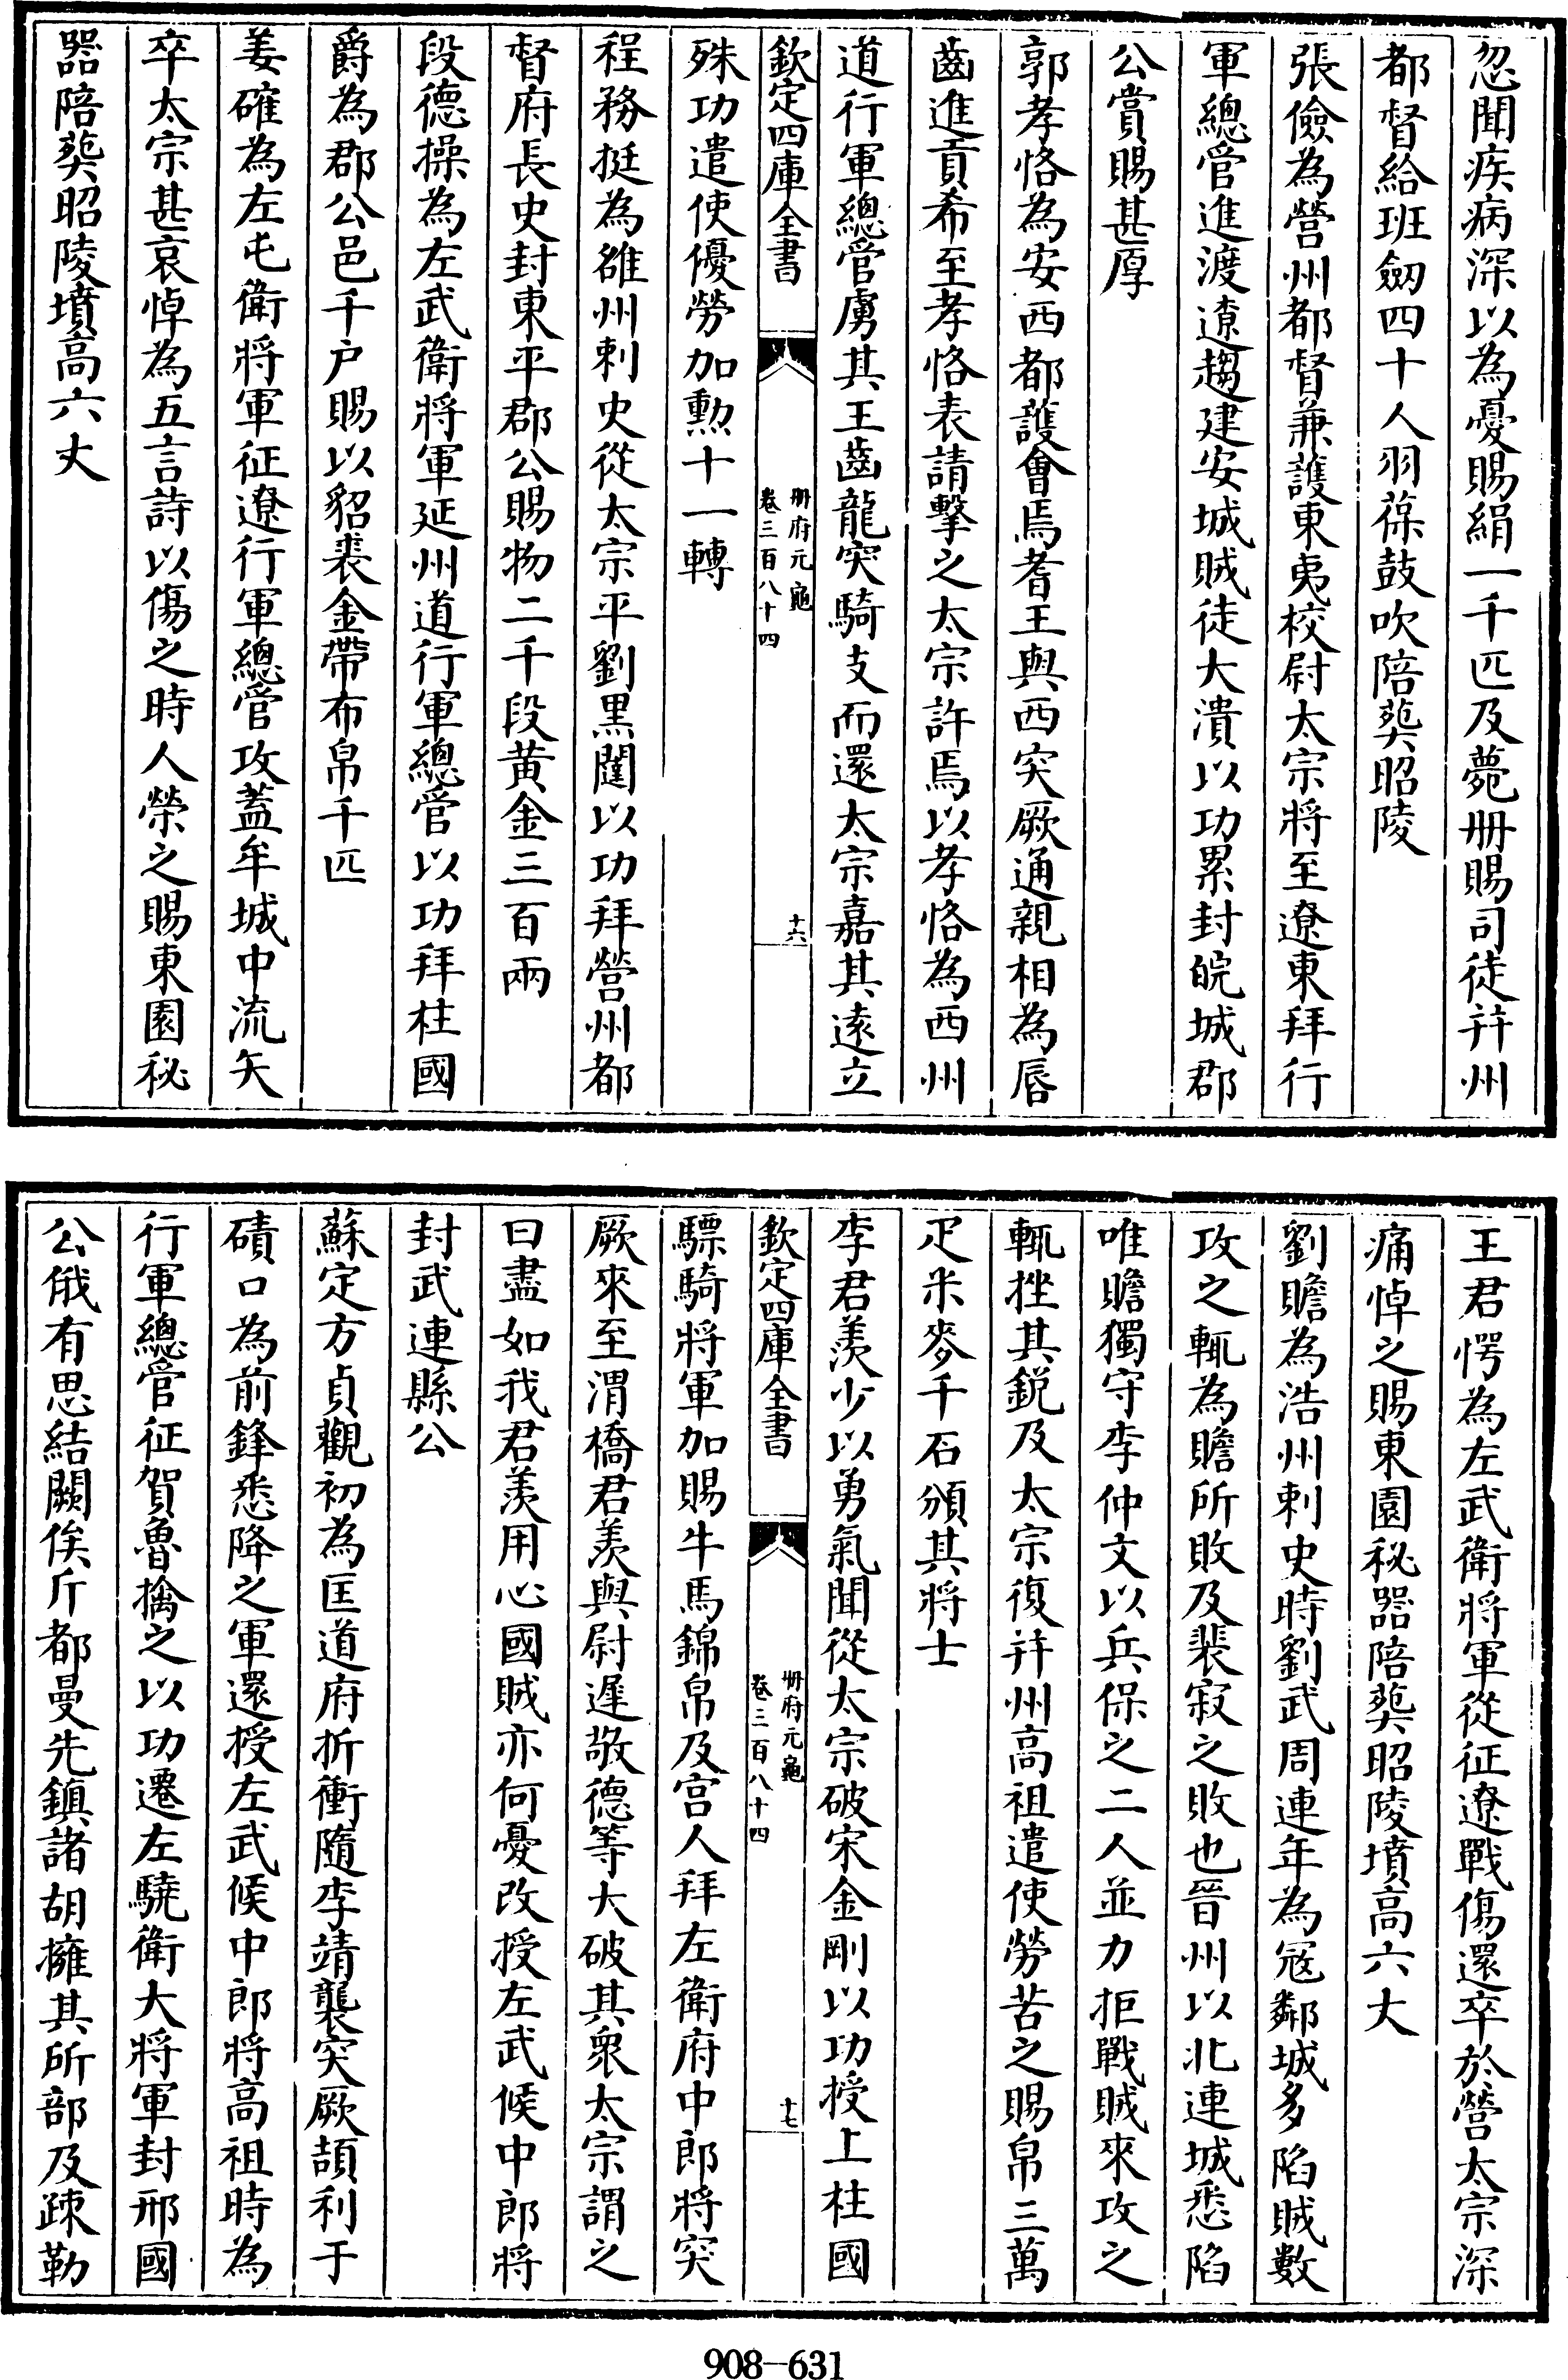 忽聞疾病深以為憂賜絹一千匹及薨册賜司徒并州
都督給班劒四十人羽葆鼓吹陪葬昭陵
張儉為營州都督兼護東夷校尉太宗將至遼東拜行
軍總管進渡遼趨建安城賊徒大潰以功累封皖城郡
公賞賜甚厚
郭孝恪為安西都護會焉耆王與西突厥通親相為唇
齒進貢希至孝恪表請擊之太宗許焉以孝恪為西州
道行軍總管虜其王齒龍突騎支而還太宗嘉其逺立
欽定四庫全書
册府元龜
卷三百八十四
十六
殊功遣使優勞加勲十一轉
程務挺為雒州刺史從太宗平劉黑闥以功拜營州都
督府長史封東平郡公賜物二千段黄金三百兩
段德操為左武衛將軍延州道行軍總管以功拜柱國
爵為郡公邑千户賜以貂裘金帶布帛千匹
姜確為左屯衛將軍征遼行軍總管攻蓋牟城中流矢
卒太宗甚哀悼為五言詩以傷之時人榮之賜東園秘
器陪葬昭陵墳高六丈
王君愕為左武衛將軍從征遼戰傷還卒於營太宗深
痛悼之賜東園秘器陪葬昭陵墳高六大
劉贍為浩州刺史時劉武周連年為冦鄰城多陷賊數
攻之輒為贍所敗及裴寂之敗也晉州以北連城悉陷
唯贍獨守李仲文以兵保之二人並力拒戰賊來攻之
輒挫其鋭及太宗復并州高祖遣使勞苦之賜帛三萬
疋米麥千石頒其將士
李君羨少以勇氣聞從太宗破宋金剛以功授上柱國
欽定四庫全書
册府元龜
卷三百八十四
十七
驃騎將軍加賜牛馬錦帛及宫人拜左衛府中郎將突
厥來至渭橋君羨與尉遲敬德等大破其衆太宗謂之
曰盡如我君羨用心國賊亦何憂改授左武候中郎將
封武連縣公
蘇定方貞觀初為匡道府折衝隨李靖襲突厥頡利于
磧口為前鋒悉降之軍還授左武候中郎將高祖時為
行軍總管征賀魯擒之以功遷左驍衛大將軍封邢國
公俄有思結闕俟斤都曼先鎮諸胡擁其所部及疎勒
908-631